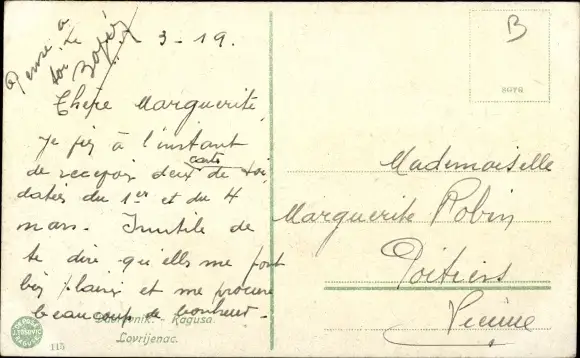 Pense à
toi Le
3-19.
Chère Marguerite
Je  à l'instant
de recevoir deux carte de toi
datées du 1er et du 4
mars. Inutile de
te dire qu'elle me font
bes plaisi et me procure
beaucoup de bonheur.
B
Mademoiselle
Marguerite Robin
Poitiers
Vienne
Dubrovnik. - Ragusa
Lovrijenac.
115